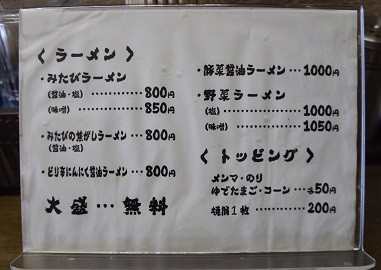 〈 ラーメン 〉
・みたびラーメン
(醤油・塩) … 800円
(味噌) … 850円
・みたびの焦がしラーメン … 800円
(醤油・塩)
・ピリ辛にんにく醤油ラーメン … 800円
大盛 … 無料
・豚菜醤油ラーメン … 1000円
・野菜ラーメン
(塩) … 1000円
(味噌) … 1050円
〈 トッピング 〉
メンマ・のり
ゆでたまご・コーン … 各50円
焼豚1枚 … 200円